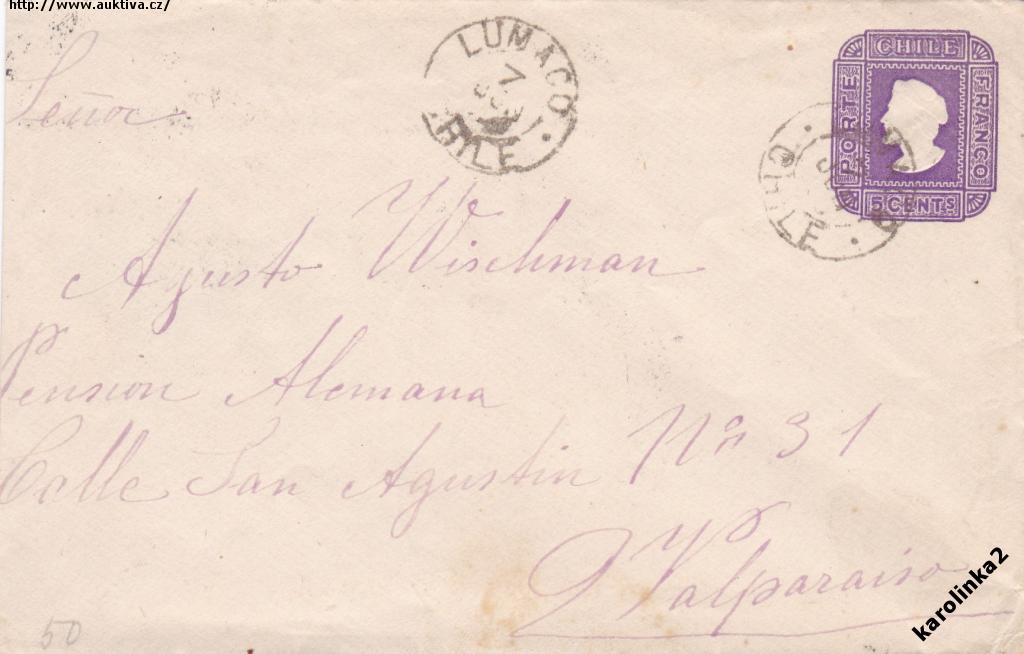 http://www.auktiva.cz/
LUMACO
CHILE
CHILE
PORTE
FRANCO
5 CENTS
CHILE
Señor
Agusto Wischman
Pension Alemana
Calle San Agustin No 31
Valparaiso
50
karolinka2